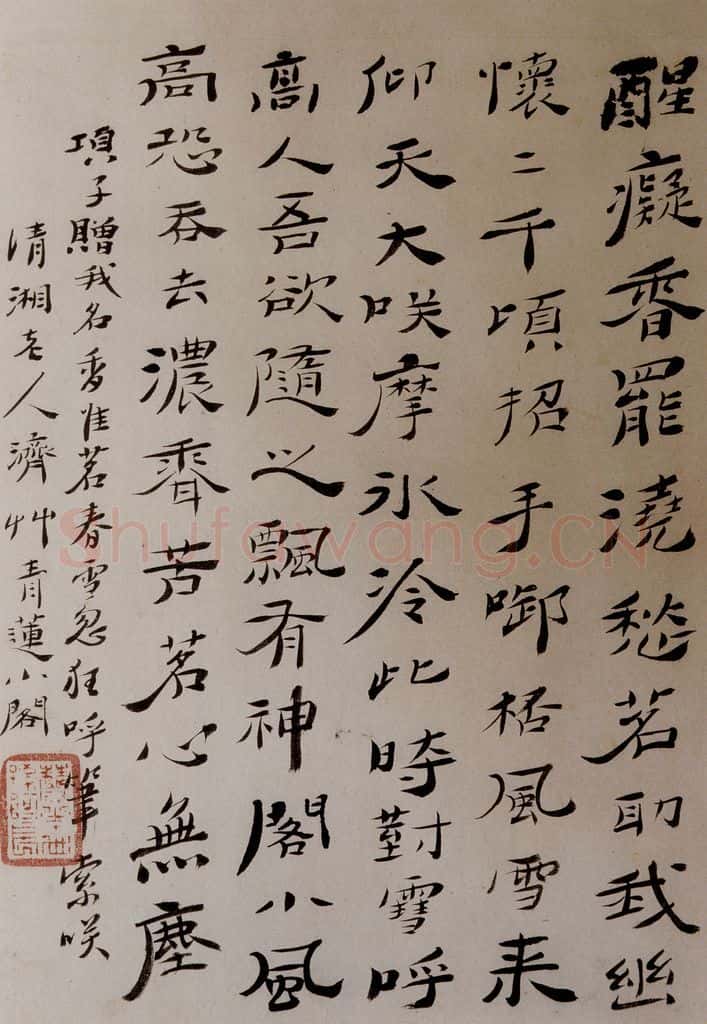 醒癡香罷澆愁茗助我幽
懷二千頃招手啣桮風雪来
仰天大咲摩氷冷此時對雪呼
高人吾欲隨之飄有神閣小風
高恐吞去濃香苦茗心無塵
項子贈我名香淮茗春雪忽狂呼筆索咲
清湘老人濟艸青蓮小閣
Shufawang.CN